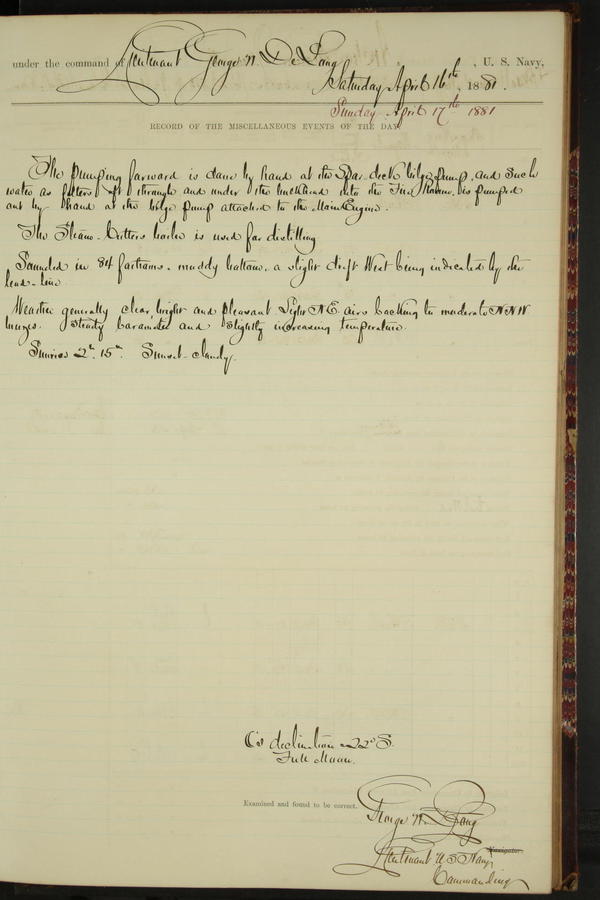 under the command of Lieutenant George W. De Long, U. S. Navy,
Saturday April 16th, 1881.
Sunday April 17th 1881
RECORD OF THE MISCELLANEOUS EVENTS OF THE DAY.
The pumping forward is done by hand at the Spar deck bilge pump, and such
water as filters aft through and under the bulkhead into the Fire Room, is pumped
out by hand at the bilge pump attached to the Main Engine.
The Steam-Cutters boiler is used for distilling
Sounded in 34 fathoms. muddy bottom. a slight drift West being indicated by the
lead-line.
Weather generally clear, bright and pleasant Light N.E. airs backing to moderate NNW
breezes. Steady barometer and slightly increasing temperature.
Sunrise 2h. 15m. Sunset - cloudy.
declination 22° S.
Full Moon.
Examined and found to be correct.
George W. De Long
Lieutenant U S Navy Navigator.
Commanding